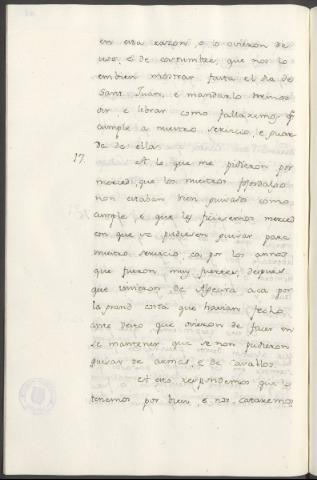 en esta razon, o lo ovieron de
uso, e de costumbre, que nos lo
embien mostrar fasta el dia de
Sant Juan, e mandarlo hemos
oir, e librar como fallaremos q̃
cumple a nuestro servicio, e guar
da de ellas.
17. Et lo que me pidieron por
merced, que los nuestros fijosdalgo
non estaban bien guisados como
cumple, e que les ficiesemos merced
con que se pudiesen guisar para
nuestro servicio, ca por los annos
que fueron muy fuertes, despues
que vinieron de Algecira acá por
la grand costa que havian fecho,
ante desto que ovieron de facer en
se mantener que se non pudieron
guisar de armas, e de cavallos.
Et esto respondemos que lo
tenemos por bien, e nos cataremos